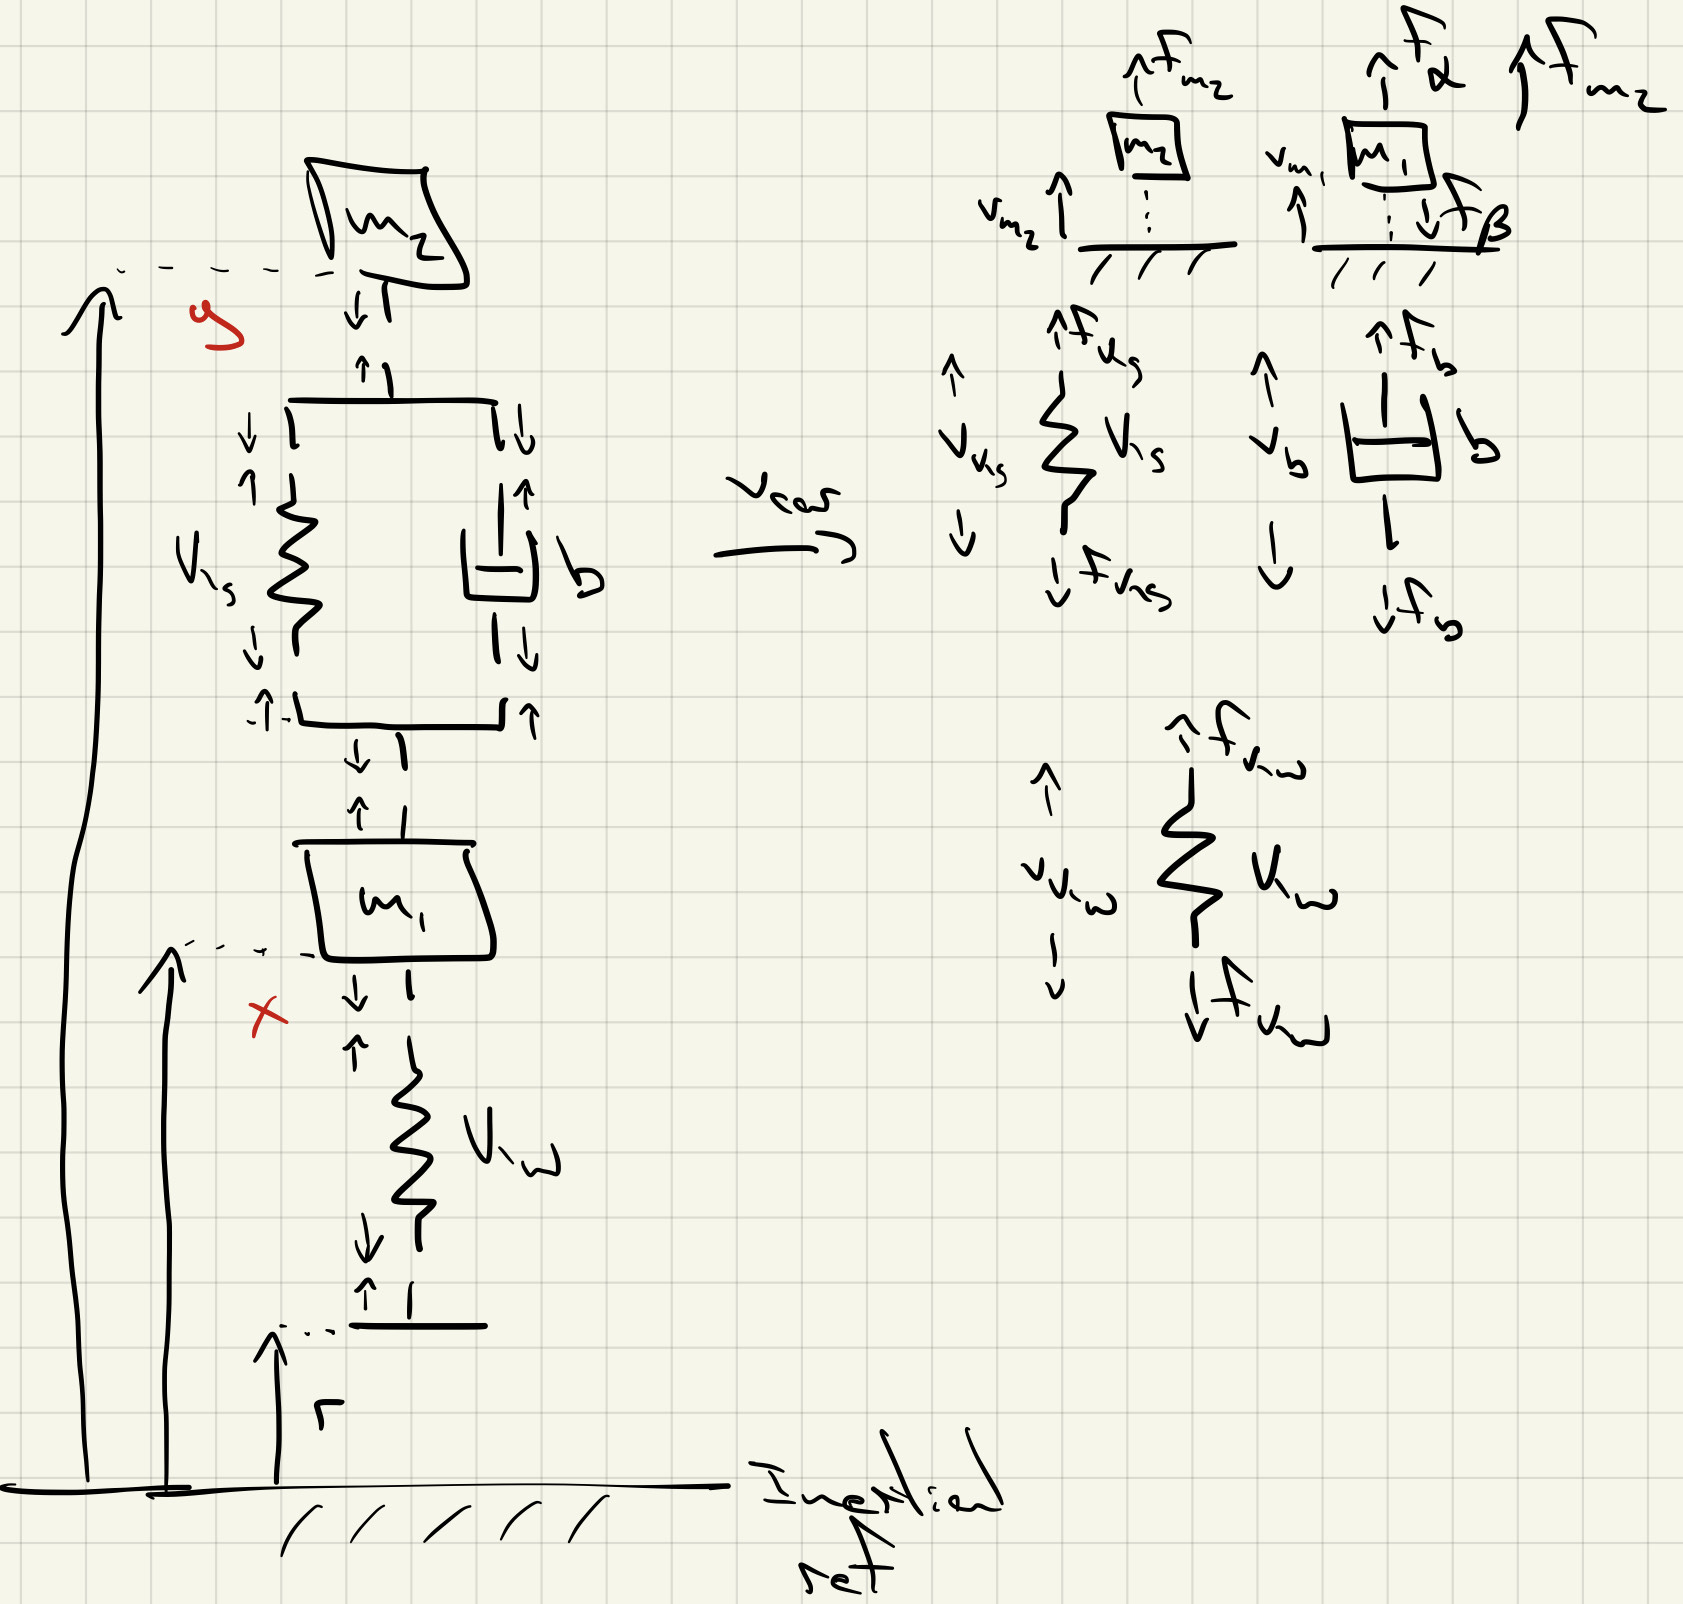 m₂
y
kₛ
b
m₁
x
k_w
r
Inertial
ref
v_car
F_m₂
m₂
v_m₂
F_α
m₁
v_m₁
F_β
F_m₂
f_kₛ
v_kₛ
kₛ
f_kₛ
f_b
v_b
b
f_b
f_k_w
v_k_w
k_w
f_k_w